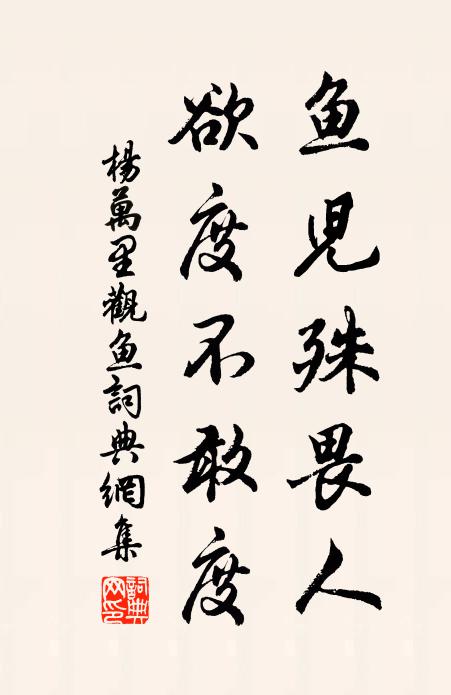 鱼児殊畏人
欲度不敢度
楊萬里觀鱼詞典網集
詞典網印